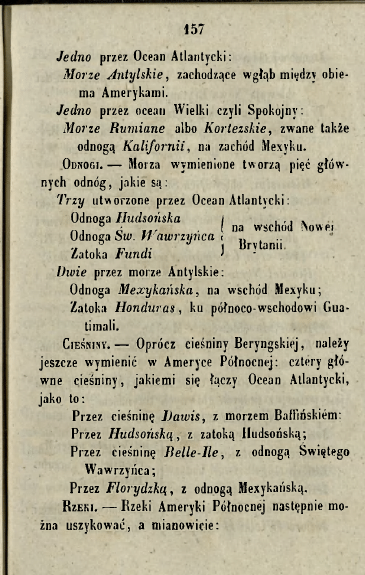 157
Jedno przez Ocean Atlantycki:
Morze Antylskie, zachodzące wgłąb między obie-
ma Amerykami.
Jedno przez ocean Wielki czyli Spokojny:
Morze Rumiane albo Kortezskie, zwane także
odnogą Kalifornii, na zachód Mexyku.
ODNOGI. — Morza wymienione tworzą pięć głów-
nych odnóg, jakie są:
Trzy utworzone przez Ocean Atlantycki:
Odnoga Hudsońska
Odnoga Św. Wawrzyńca
Zatoka Fundi
na wschód Nowej
Brytanii.
Dwie przez morze Antylskie:
Odnoga Mexykańska, na wschód Mexyku;
Zatoka Honduras, ku północo-wschodowi Gua-
timali.
CIEŚNINY. — Oprócz cieśniny Beryngskiej, należy
jeszcze wymienić w Ameryce Północnej: cztery głó-
wne cieśniny, jakiemi się łączy Ocean Atlantycki,
jako to:
Przez cieśninę Dawis, z morzem Baffińskiém:
Przez Hudsońską, z zatoką Hudsońską;
Przez cieśninę Belle-Ile, z odnogą Świętego
Wawrzyńca;
Przez Florydzką, z odnogą Mexykańską.
RZEKI. — Rzeki Ameryki Północnej następnie mo-
żna uszykować, a mianowicie: